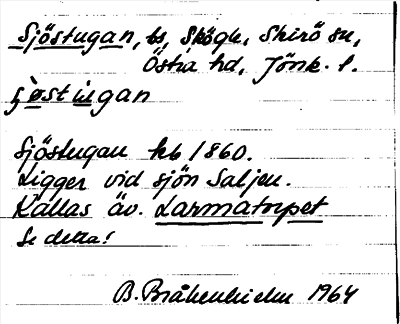 Sjöstugan, ls, Skogh, Skirö sn,
Östra hd, Jönk. l.
sjöstugan
Sjöstugan hb 1860.
Ligger vid sjön Saljen.
Kallas äv. Larmatorpet
Se detta!
B. Bråkenhielm 1964